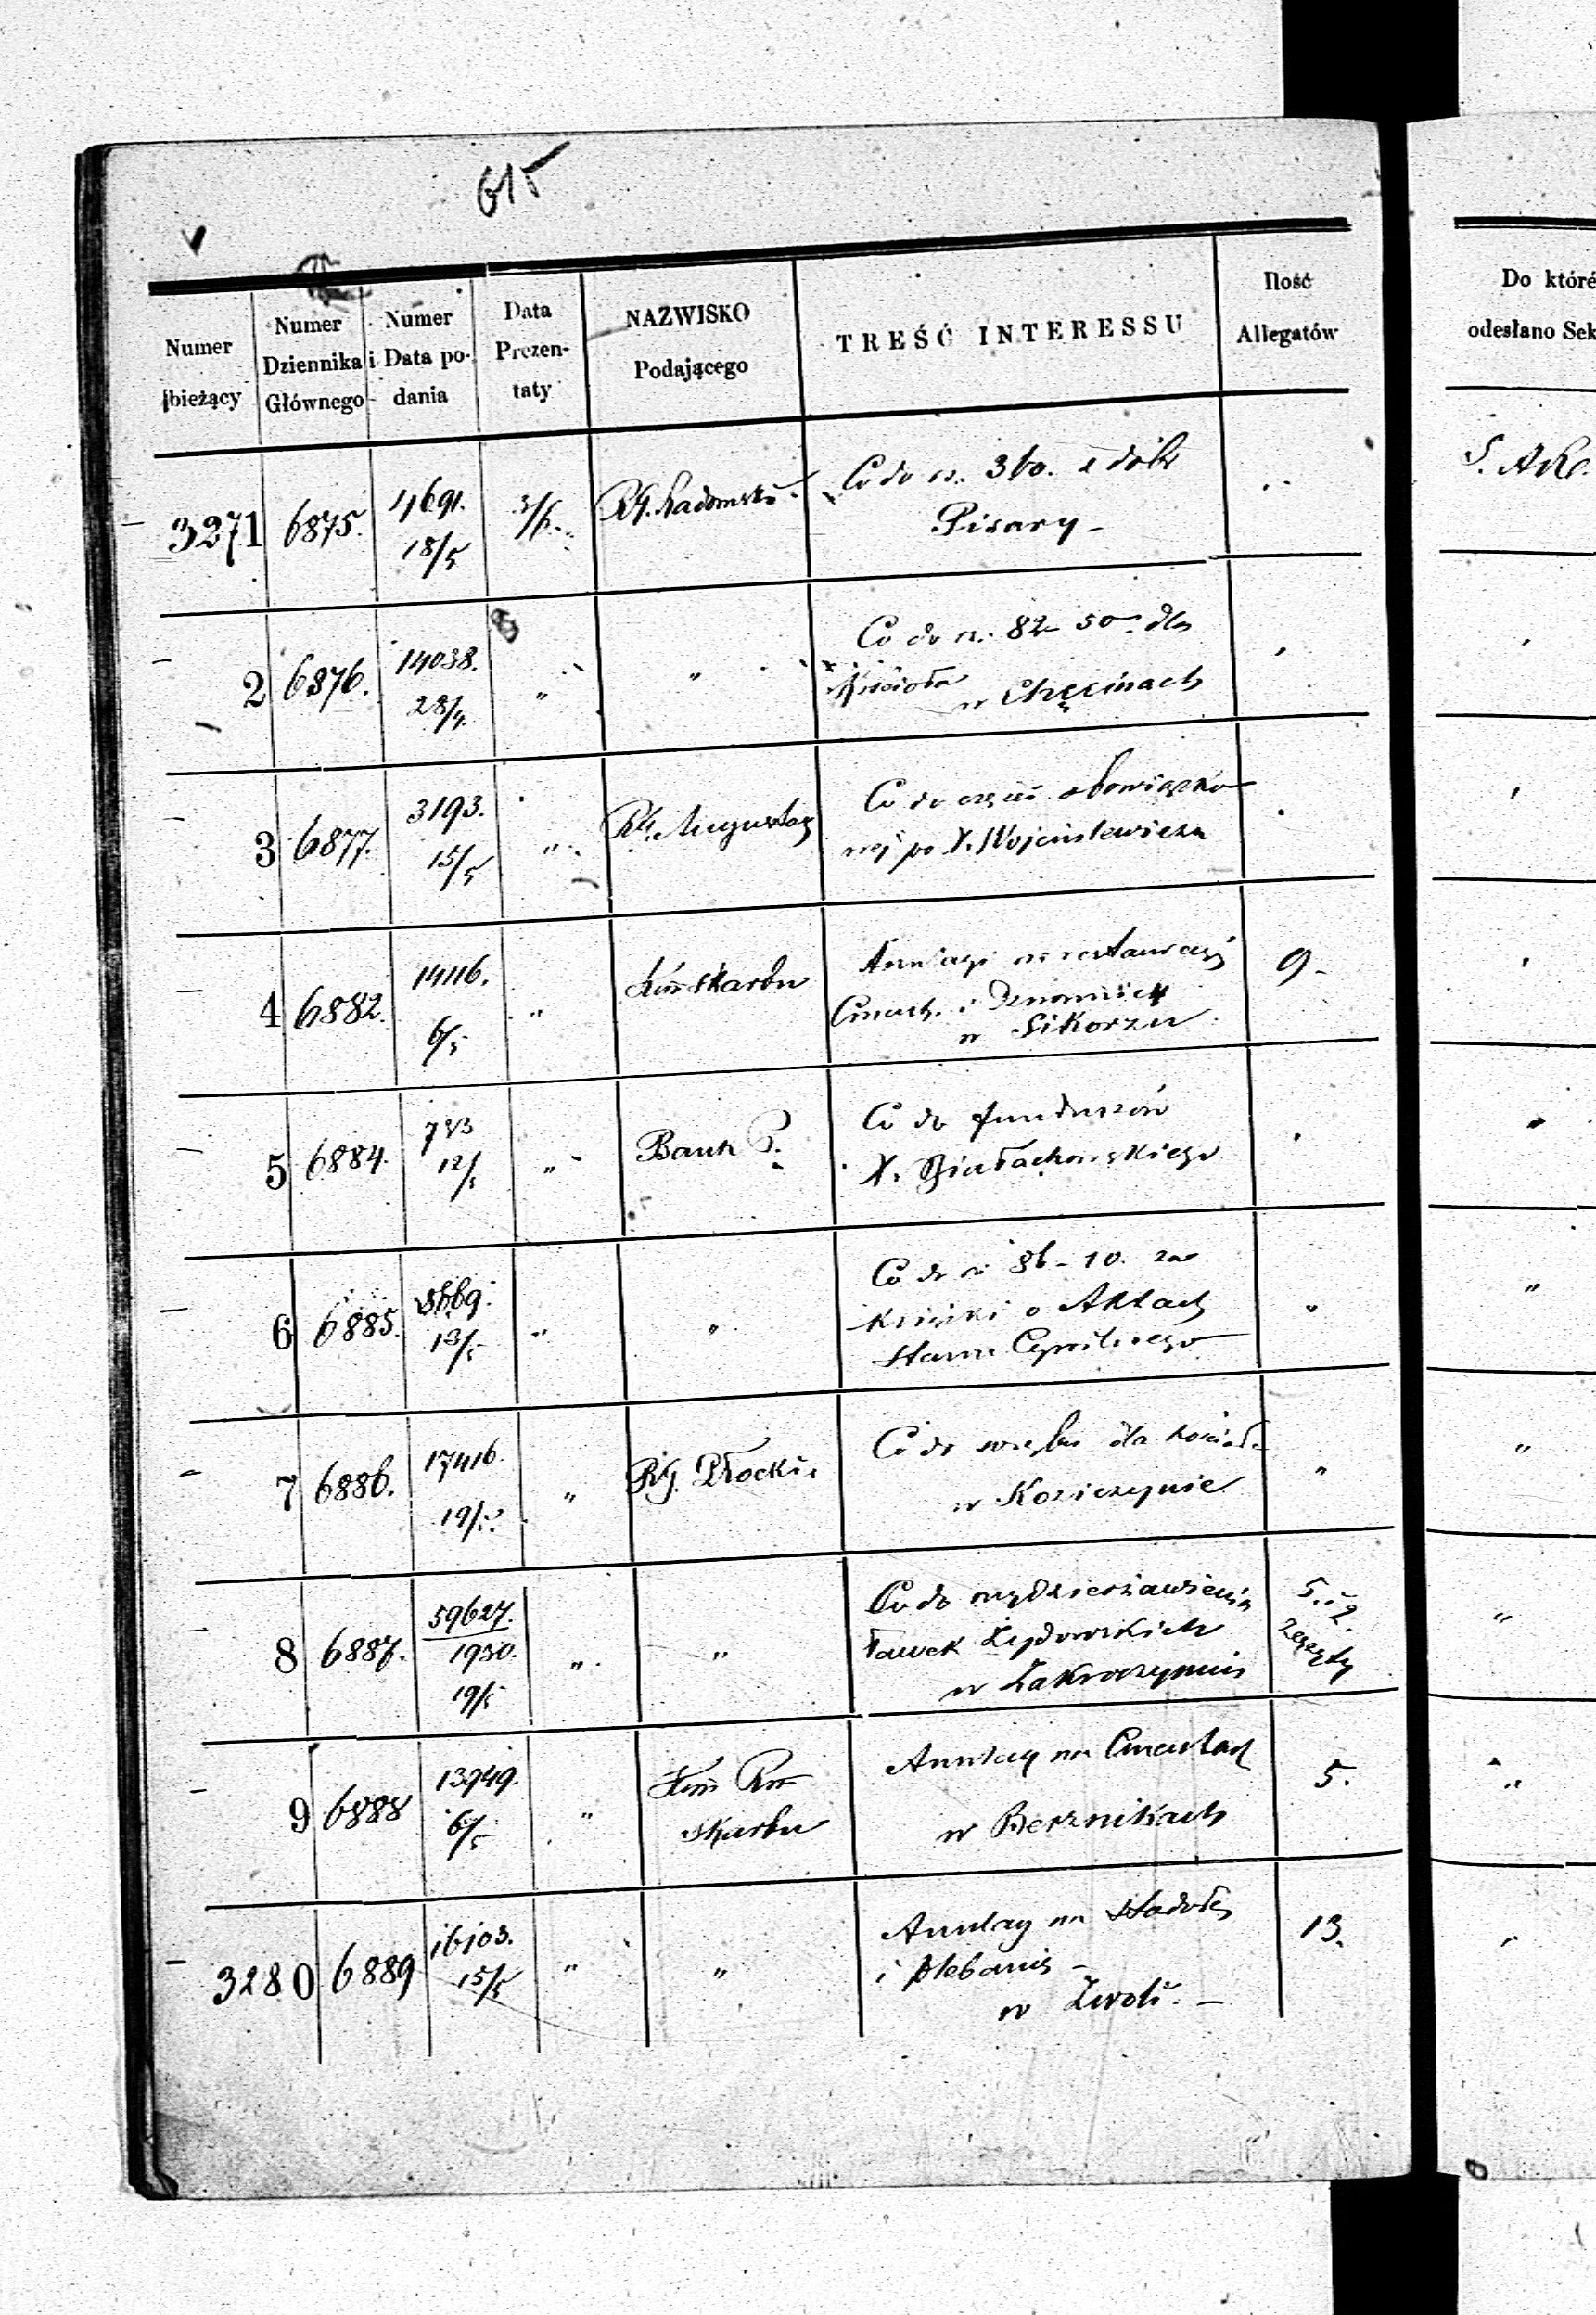 615
Numer bieżący
Numer Dziennika Głównego
Numer i Data podania
Data Prezentaty
NAZWISKO Podającego
TREŚĆ INTERESSU
Ilość Allegatów
Do któré
odesłano Sek
3271 6875. 4691. 18/5 3/6 RG. Radomski Co do rs. 360. z dóbr
Pisary –
2 6876. 14038. 28/4. " " Co do rs. 82 50 dla
Kościoła
w Chęcinach
3 6877. 3193. 15/5 " RG. Augustow Co do części obowiązko
wej po X. Wojcinlewiczu
4 6882. 14116. 6/5 " Kom Skarbu Anszlagi na restauracyi 9
Cment. i Dzwonnicy
w Sikorzu
5 6884. 743 12/5 " Bank P. Co do funduszów
X. Białachowskiego
6 6885. 8669. 13/5 " " Co do rs 86 – 10. za
Książki o Aktach
Stanu Cywilnego
"
7 6886. 17416. 19/5 " RG. Płocki Co do wrębu dla kościoła
w Kosiczynie
"
8 6887. 59627. 1930. 19/5 " " Co do wydzierżawienia 5. i 2.
ławek Żydowskich zeszyty
w Zakroczymiu
9 6888 13949. 6/5 " Kom Rz Anszlag na Cmentarz 5.
Skarbu w Berznikach
3280 6889 16103. 15/5 " " Anszlag na Stodołę 13.
i plebanię –
w Zwoli. –